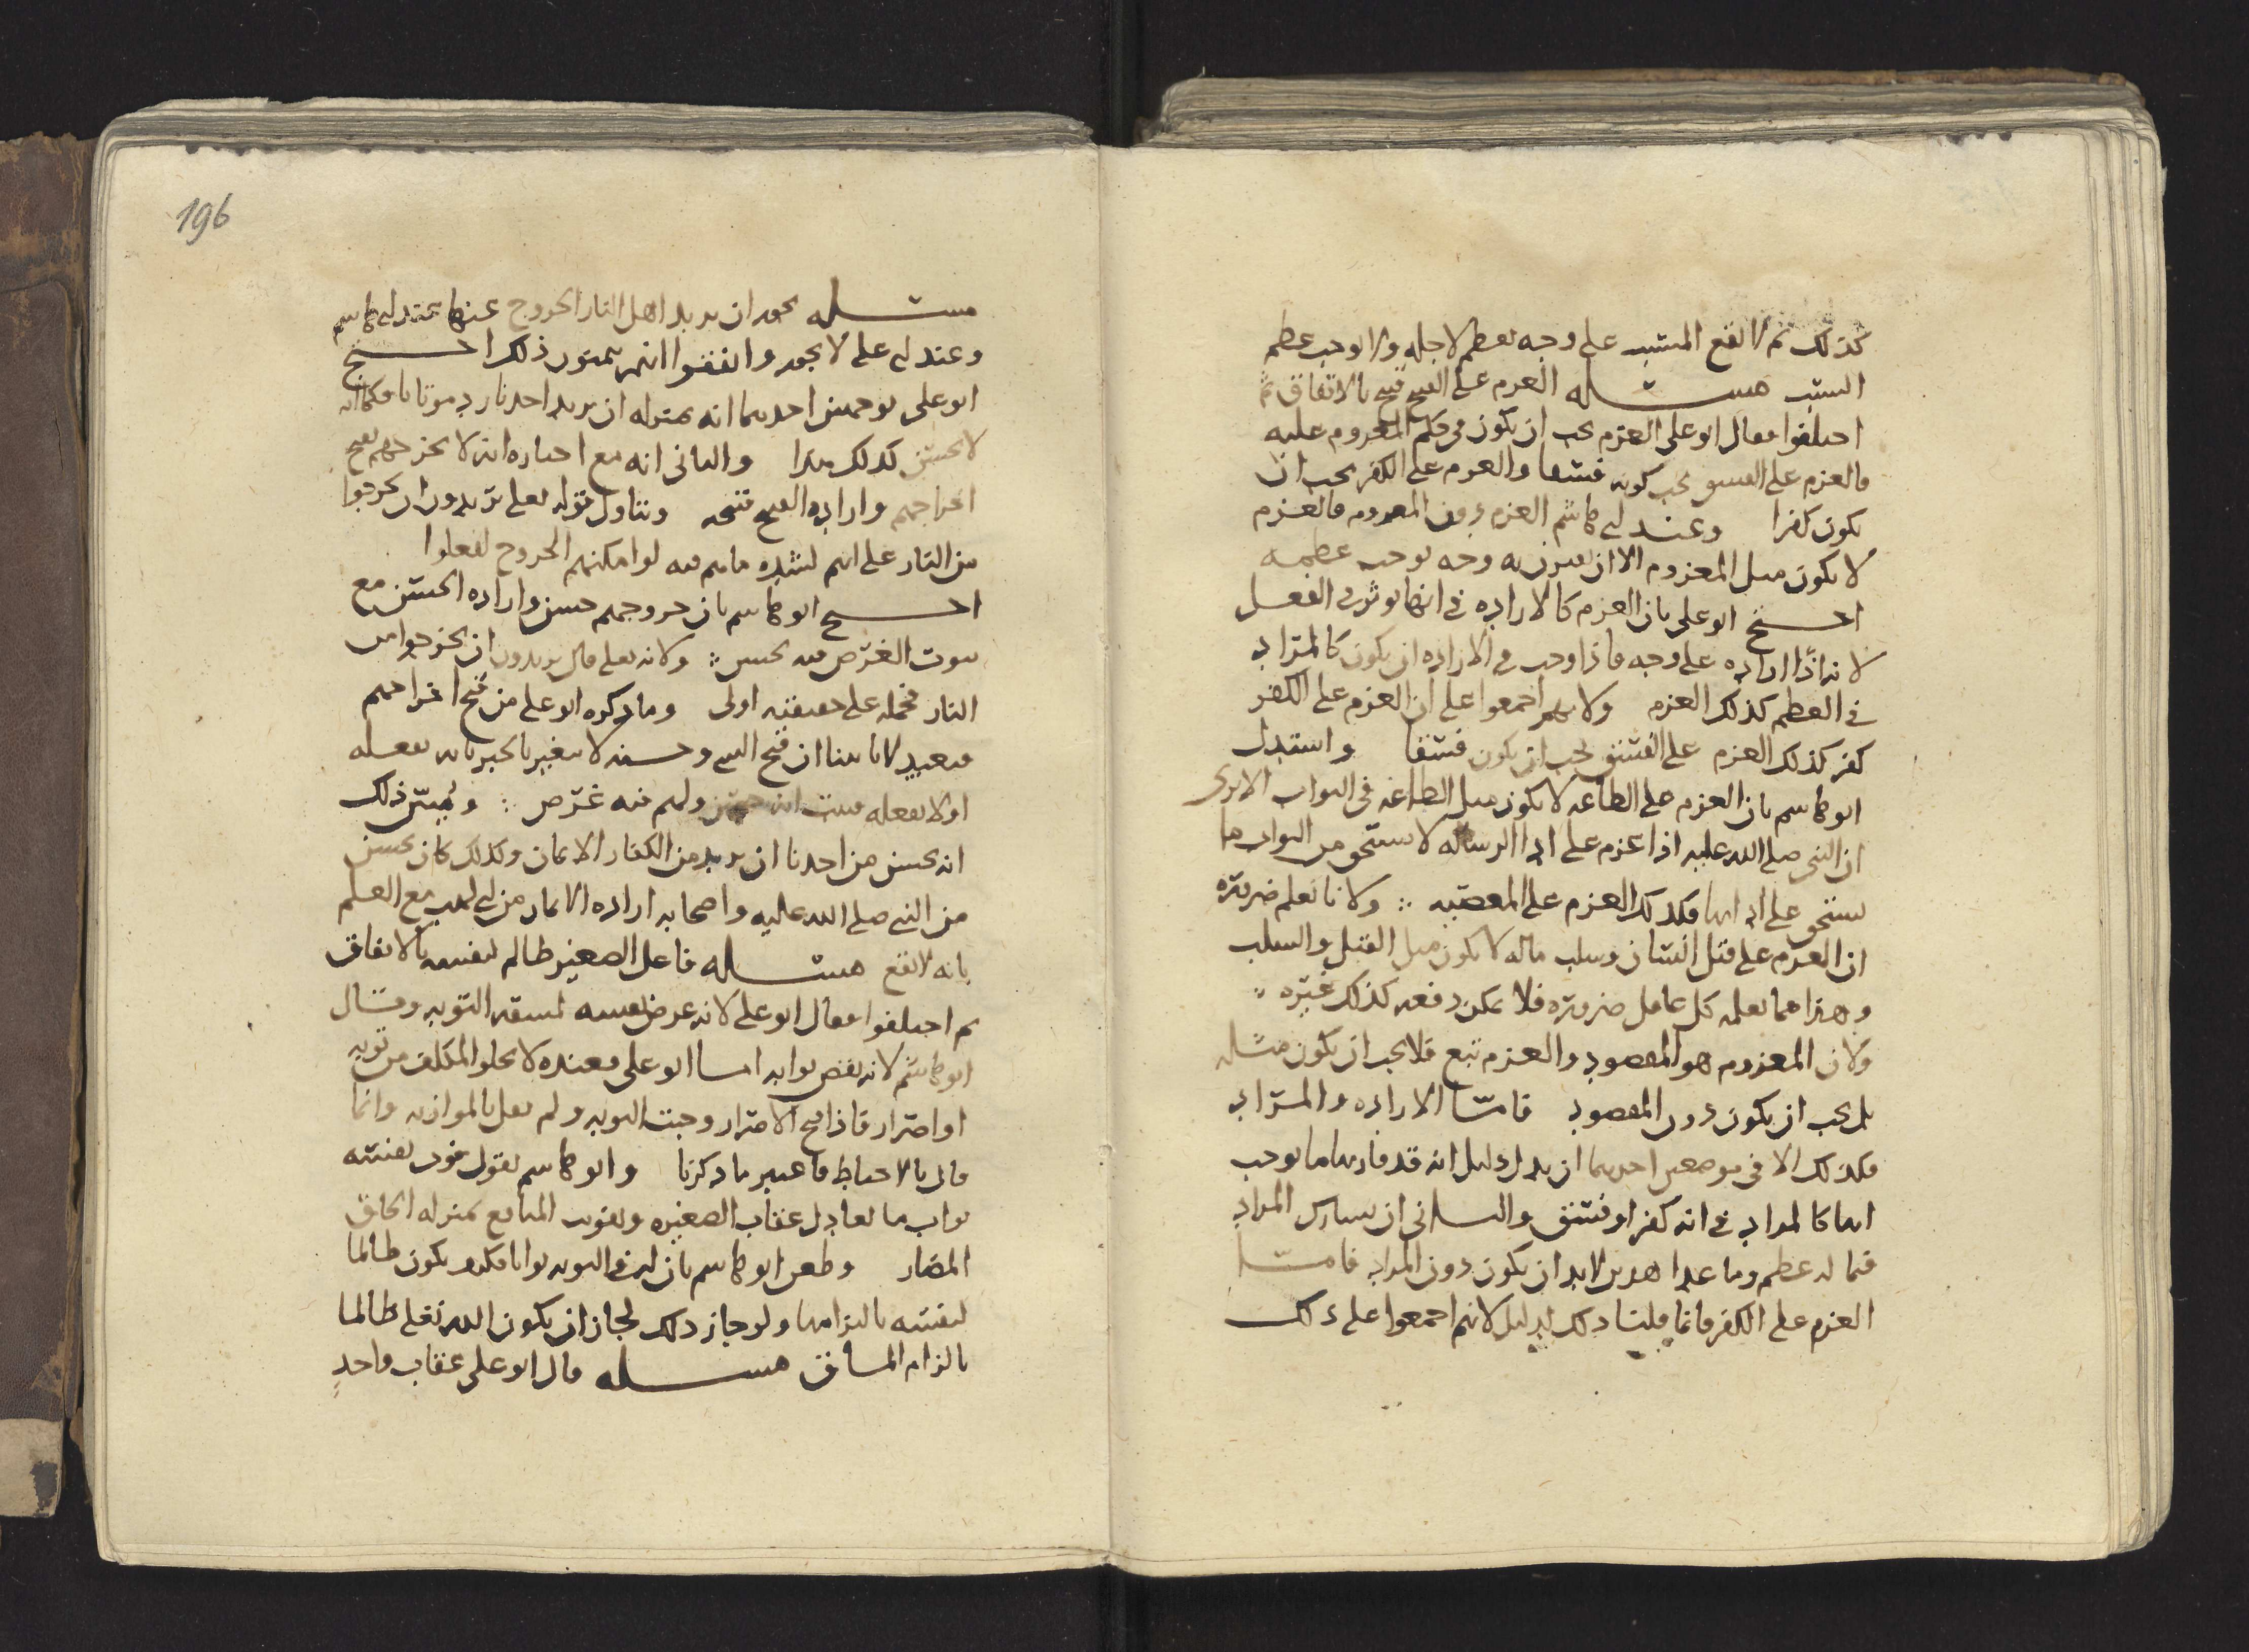 كذلك ثم لا يقع المسبب على وجه يعظم لاجله ولا يوجب عظم
السبب مسئله العزم على القبيح قبيح بالاتفاق ثم
اختلفوا فقال ابو على العزم يجب ان يكون في حكم المعزوم عليه
فالعزم على الفسق يجب كونه فسقا والعزم على الكفر يجب ان
يكون كفرا وعند ابي هاشم العزم دون المعزوم فالعزم
لا يكون مثل المعزوم الا ان يقترن به وجه يوجب عظمه
احتج ابو على بان العزم كالاراده في انها يوثر في الفعل
لانه اذا اراده على وجه فاذا وجب في الاراده ان يكون كالمراد
في العظم كذلك العزم ولانهم اجمعوا على ان العزم على الكفر
كفر كذلك العزم على الفسق يجب ان يكون فسقا واستدل
ابو هاشم بان العزم على الطاعه لا يكون مثل الطاعه في الثواب الا ترى
ان النبي صلى الله عليه اذا عزم على ادا الرساله لا يستحق من الثواب ما
يستحق على ادايها فكذلك العزم على المعصيه ولانا نعلم ضروره
ان العزم على قتل انسان وسلب ماله لا يكون مثل القتل والسلب
وهذا مما يعلمه كل عاقل ضروره فلا يمكن دفعه كذلك غيره
ولان المعزوم هو المقصود والعزم تبع فلا يجب ان يكون مثله
بل يجب ان يكون دون المقصود فاما الاراده والمراد
فكذلك الا في موضعين احدهما ان يدل دليل انه قد قارنها ما يوجب
انها كالمراد في انه كفر او فسق والثاني ان يشارك المراد
فيما له عظم وما عدا هذين لابد ان يكون دون المراد فاما
العزم على الكفر فانما قلنا ذلك لدليل لانهم اجمعوا على ذلك
196
مسئله يجوز ان يريد اهل النار الخروج عنها عند ابي هاشم
وعند ابي على لا يجوز واتفقوا انهم يتمنون ذلك احتج
ابو على بوجهين احدهما انه بمنزله ان يريد احدنا رد موتانا فكما انه
لا يحسن كذلك هذا والثاني انه مع اخباره انه لا يخرجهم يقبح
اخراجهم واراده القبيح قبيحه وتناول قوله تعلى يريدون ان يخرجوا
من النار على انهم لشده ما هم فيه لو امكنهم الخروج لفعلوا
احتج ابو هاشم بان خروجهم حسن واراده الحسن مع
ثبوت الغرض فيه يحسن ولانه تعلى قال يريدون ان يخرجوا من
النار فحمله على حقيقته اولى وما ذكره ابو على من قبح اخراجهم
فبعيد لانا بينا ان قبح الشي وحسنه لا يتغير بالخبر بانه يفعله
او لا يفعله فثبت انه حسن ولهم فيه غرض ويبين ذلك
انه يحسن من احدنا ان يريد من الكفار الايمان وكذلك كان يحسن
من النبي صلى الله عليه واصحابه اراده الايمان من ابي لهب مع العلم
بانه لا يقع مسئله فاعل الصغير ظالم لنفسه بالاتفاق
ثم اختلفوا فقال ابو على لانه عرض نفسه لمشقه التوبه وقال
ابو هاشم لانه نقص ثوابه اما ابو على فعنده لا يخلو المكلف من توبه
او اصرار فاذا قبح الاصرار وجبت التوبه ولم يقل بالموازنه وانما
قال بالاحباط فاعتبر ما ذكرنا وابو هاشم يقول فوت نفسه
ثواب ما يعادل عقاب الصغيره وتفويت المنافع بمنزله الحاق
المضار وطعن ابو هاشم بان له في التوبه ثوابا فكيف يكون ظالما
لنفسه بالتزامها ولو جاز ذلك لجاز ان يكون الله تعلى ظالما
بالزام المشاق مسئله قال ابو على عقاب واحد